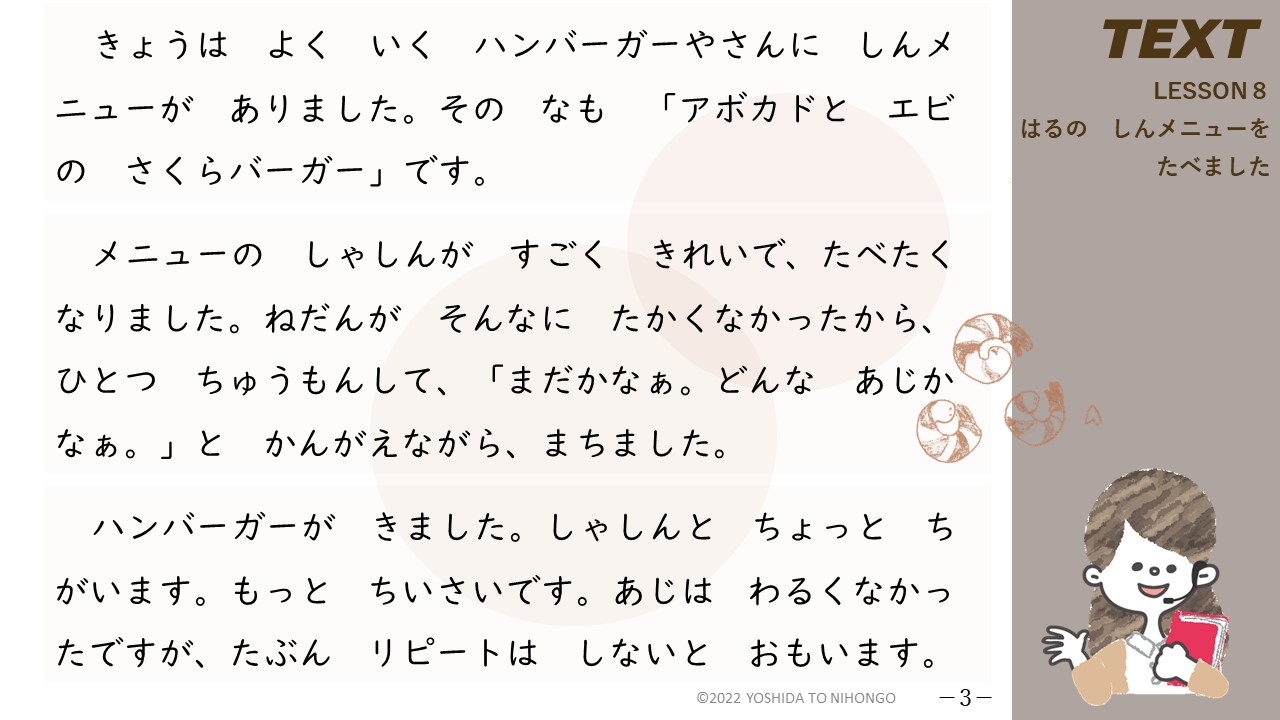 きょうは　よく　いく　ハンバーガーやさんに　しんメ
ニューが　ありました。その　なも　「アボカドと　エビ
の　さくらバーガー」です。
メニューの　しゃしんが　すごく　きれいで、たべたく
なりました。ねだんが　そんなに　たかくなかったから、
ひとつ　ちゅうもんして、「まだかなぁ。どんな　あじか
なぁ。」と　かんがえながら、まちました。
ハンバーガーが　きました。しゃしんと　ちょっと　ち
がいます。もっと　ちいさいです。あじは　わるくなかっ
たですが、たぶん　リピートは　しないと　おもいます。
©2022 YOSHIDA TO NIHONGO
－3－
TEXT
LESSON８
はるの　しんメニューを
たべました